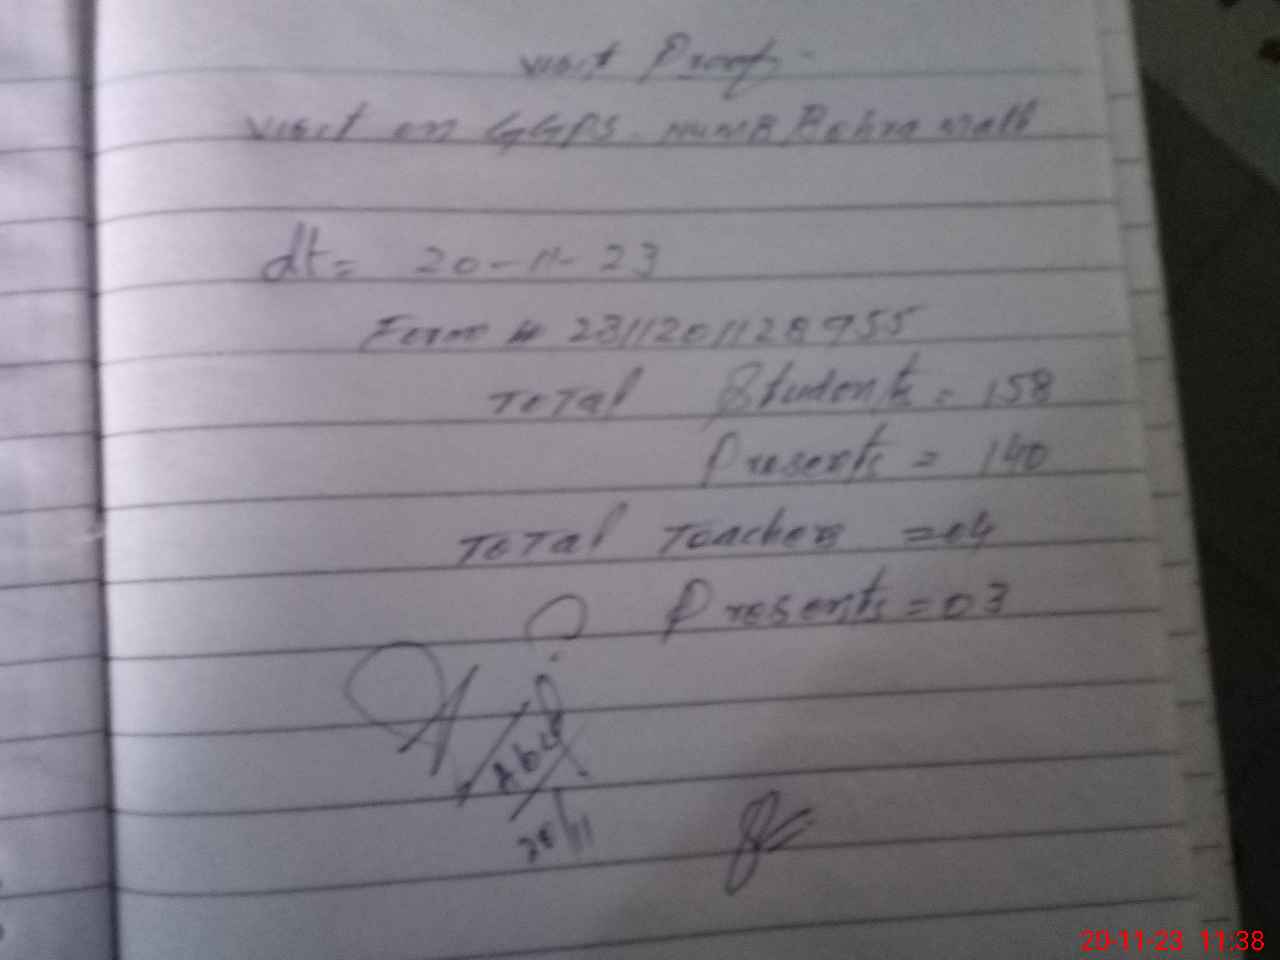 visit Proof
visit on GGPS. Numb
dt = 20-11-23
Form # 2311201128955
Total Students = 158
Presents = 140
Total Teachers = 04
Presents = 03
20/11
20-11-23 11:38